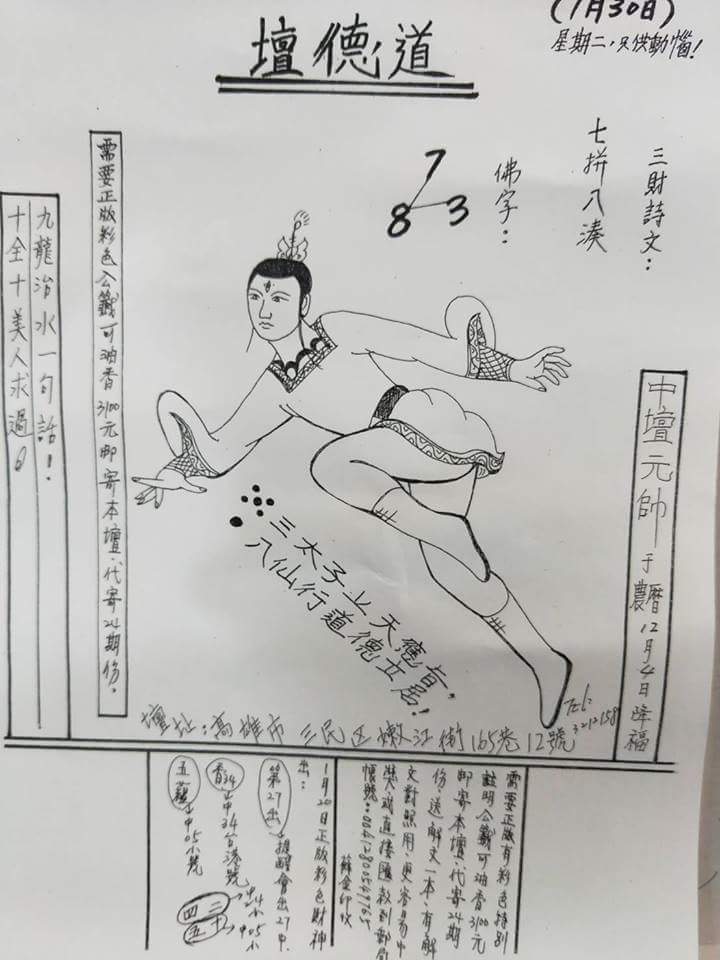 (1月30日)
星期二,只供動惱!
道德壇
三財詩文:
七拼八湊
佛字:
7
8 3
中壇元帥于農曆12月4日降福
需要正版彩色公籤可油香3100元郵寄本壇.代寄24期份.
九龍治水一句話!
十全十美人求過
三太子
天
八仙行道德
壇址:高雄市三民區嫩江街165巷12號
Tel:
3212158
需要正版有彩色特別
註明公籤可油香3100元
郵寄本壇.代寄24期
份.送解文一本.有解
文對照用.更容易中
獎.或直接匯款到郵局
帳號:
1月20日正版彩色財神
出:
第27出 提醒會出27中.
香34 中34台港號
五 中05小號
四二 中24小
五十 中05小